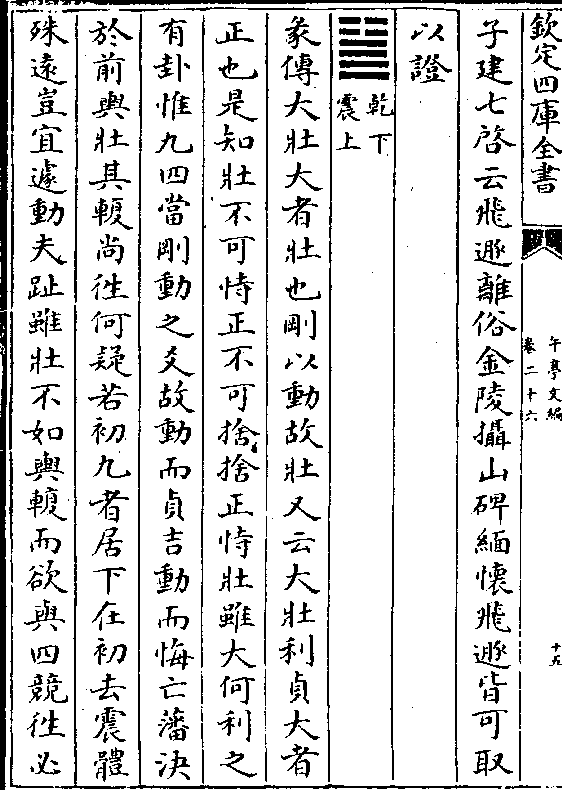 欽定四庫全書
午亭文編
卷二十六
十五
子建七啓云飛遯離俗金陵攝山碑緬懷飛遯皆可取
以證
乾下
震上
彖傳大壯大者壯也剛以動故壯又云大壯利貞大者
正也是知壯不可恃正不可捨捨正恃壯雖大何利之
有卦惟九四當剛動之爻故動而貞吉動而悔亡藩決
於前輿壯其輹尚徃何疑若初九者居下在初去震體
殊遠豈宜遽動夫趾雖壯不如輿輹而欲與四競徃必